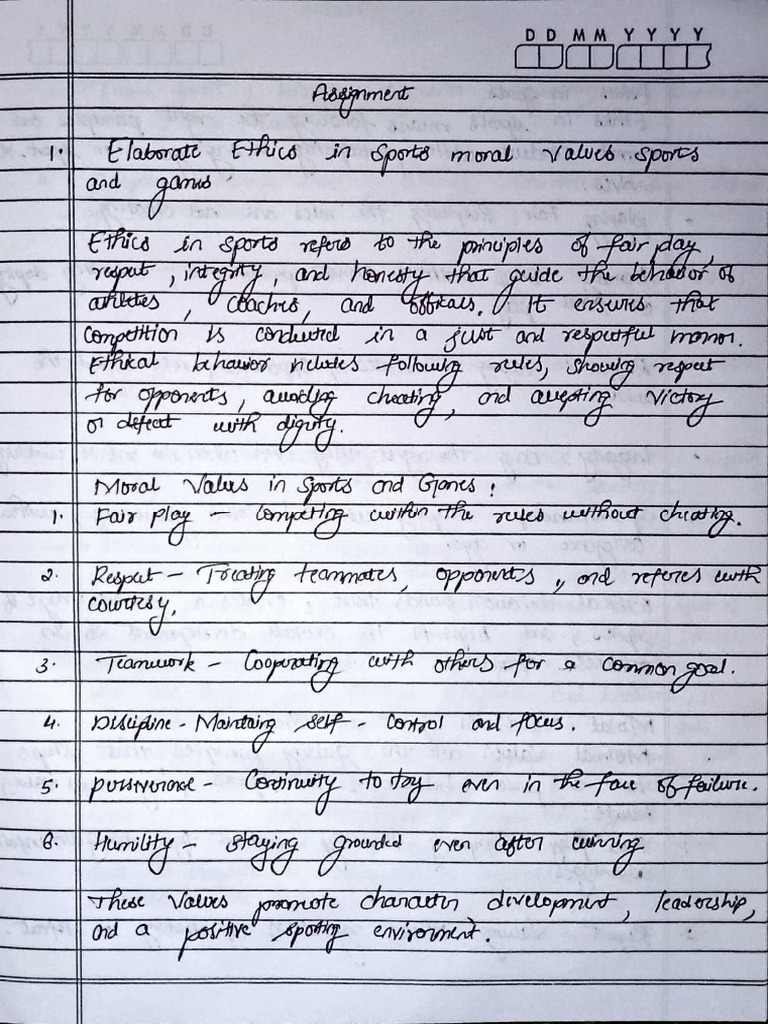 D D M M Y Y Y Y
Assignment
1. Elaborate Ethics in Sports moral values sports
and games
Ethics in sports refers to the principles of fair play,
respect, integrity, and honesty that guide the behavior of
athletes, coaches, and officals. It ensures that
competition is conducted in a just and respectful manner.
Ethical behavior includes following rules, showing respect
for opponents, avoiding cheating, and accepting victory
or defeat with dignity.
Moral Values in Sports and Games:
1. Fair play - Competing within the rules without cheating.
2. Respect - Treating teammates, opponents, and referes with
courtesy.
3. Teamwork - Cooperating with others for a common goal.
4. Discipline - Maintaing self - control and focus.
5. perseverance - Continuity to try even in the face of failure.
6. Humility - staying grounded even after winning
These values promote character development, leadership,
and a positive sporting enviroment.